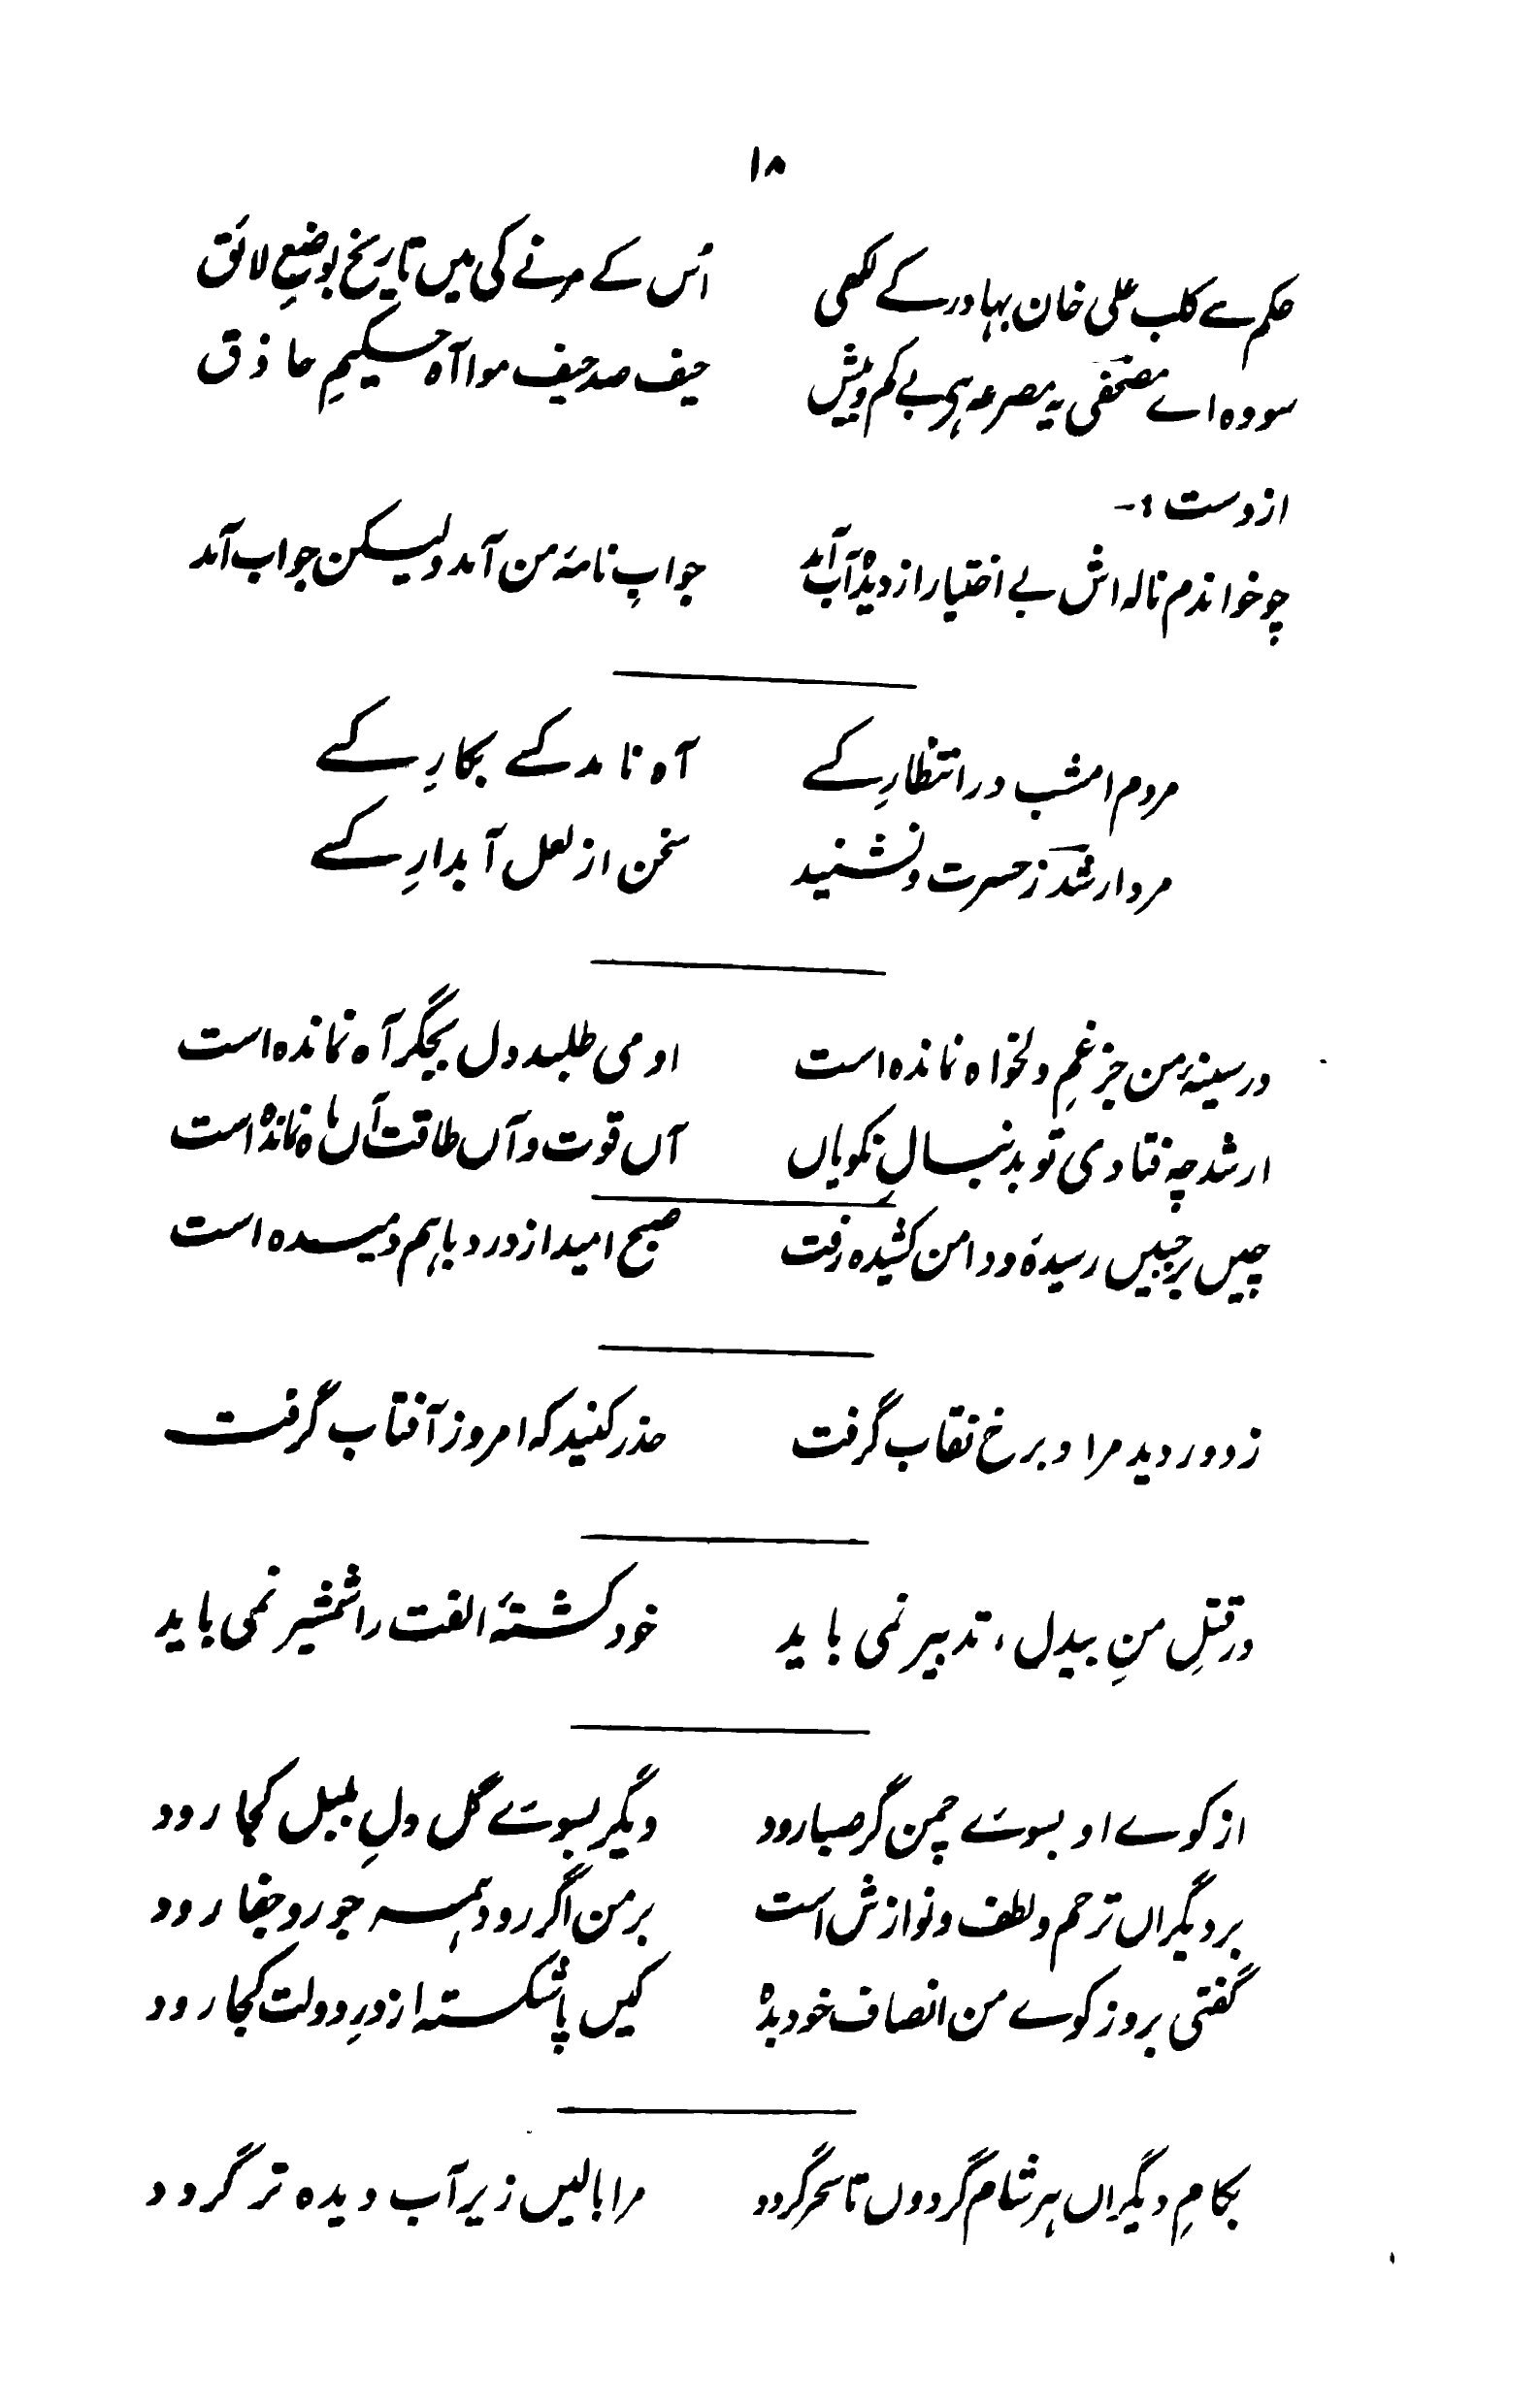 ۱۸
حکم سے کلب علی خان بہادر کے لکھی اُس کے مرنے کی میں تاریخ بوضعِ لائق
سو وہ اے مصحفی یہ مصرعہ ہی بے کم و بیش حیف صد حیف موا آہ حکیمِ حاذق
از وست :-
چو خواندم نالہ اش بے اختیار از دیدہ آب آمد جوابِ نامۂ من آمد و لیکن جواب آمد
مردم امشب در انتظارِ کسے آہ نامد کسے بکارِ کسے
مرد ارشد ز حسرت و نشنید سخن از لعل آبدارِ کسے
در سینۂ من جز غمِ دلخواہ نماندہ است او می طلبد دل بجگر آہ نماندہ است
ارشد چہ فتادی تو بدنبالِ نکویاں آں قوت و آں طاقت و آں باہ نماندہ است
چیں بر جبیں رسیدۂ و دامن کشیدہ رفت صبح امید از درد باہم دمیدہ است
ز دور دید مرا و برخ نقاب گرفت حذر کنید کہ امروز آفتاب گرفت
در قتلِ منِ بیدل، تدبیر نمی باید خود کشتۂ الفت را شمشیر نمی باید
از کوے او بسوئے چمن گر صبا رود دیگر بسوئے گل دلِ بلبل کجا رود
بر دیگراں ترحم و لطف و نوازش است بر من اگر رود ہمہ جور و جفا رود
گفتی برو ز کوے من انصاف خود بدہ کیں پا شکستہ از درِ دولت کجا رود
بکامِ دیگراں ہر شام گردوں تا سحر گردد مرا بالیں زیر آب دیدہ تر گردد